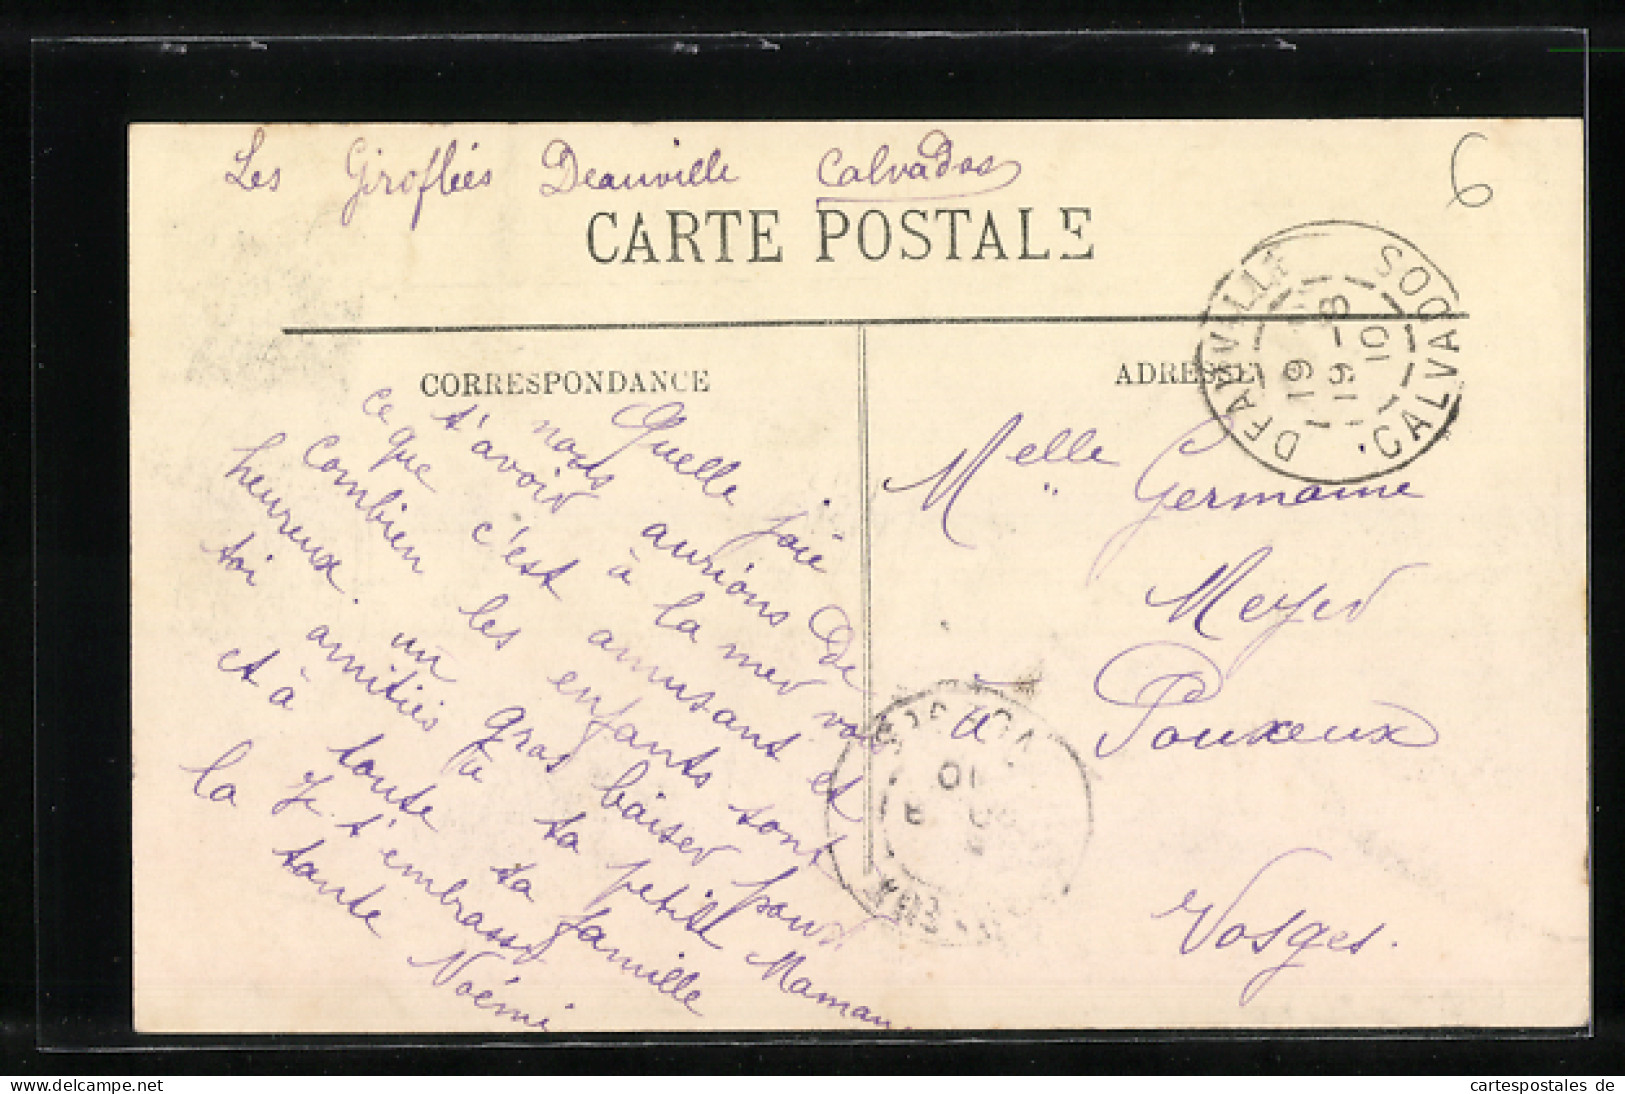 Les Giroflées Deauville Calvados
6
CARTE POSTALE
CORRESPONDANCE
ADRESSE
DEAUVILLE
CALVADOS
19
19 - 8
10
Quelle joie
nous aurions de
t'avoir à la mer vois
ce que c'est amusant et
combien les enfants sont
heureux. un gros baiser pour
toi amitiés à ta petite Maman
et à toute ta famille
Je t'embrasse
la tante Noémi
Melle Germaine
Meyer
à Pouxeux
Vosges.
VOSGES
10
cartespostales de